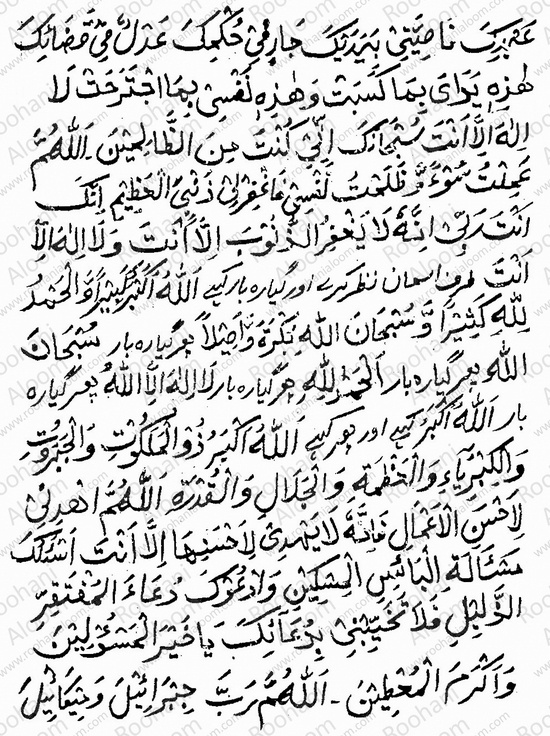 عَبْدِكَ نَاصِيَتِيْ بِيَدِيْكَ جَارٍ فِيْ حُكْمِكَ عَدْلٌ فِيْ قَضَائِكَ
هٰذِهٖ يَدَاىَ بِمَا كَسَبَتْ وَهٰذِهٖ نَفْسِيْ بِمَا اجْتَرَحَتْ لَا
اِلٰهَ اِلَّا اَنْتَ سُبْحَانَكَ اِنِّيْ كُنْتُ مِنَ الظَّالِمِيْنَ۔ اَللّٰهُمَّ
عَمِلْتُ سُوْءً وَّ ظَلَمْتُ نَفْسِيْ فَاغْفِرْلِيْ ذَنْبِيَ الْعَظِيْمَ اِنَّكَ
اَنْتَ رَبِّيْ اِنَّهٗ لَا يَغْفِرُ الذُّنُوْبَ اِلَّا اَنْتَ وَلَا اِلٰهَ اِلَّا
اَنْتَ طرف اسمان نظر کرے اور گیارہ بار کہے اَللّٰهُ اَكْبَرُ كَبِيْرًا وَّالْحَمْدُ
لِلّٰهِ كَثِيْرًا وَّ سُبْحَانَ اللّٰهِ بُكْرَةً وَّ اَصِيْلًا پھر گیارہ بار سُبْحَانَ
اللّٰهِ پھر گیارہ بار اَلْحَمْدُ لِلّٰهِ پھر گیارہ بار لَا اِلٰهَ اِلَّا اللّٰهُ پھر گیارہ
بار اَللّٰهُ اَكْبَرُ کہے اور پھر کہے اَللّٰهُ اَكْبَرُ ذُو الْمَلَكُوْتِ وَالْجَبَرُوْتِ
وَالْكِبْرِيَاءِ وَالْعَظَمَةِ وَالْجَلَالِ وَالْقُدْرَةِ اَللّٰهُمَّ اهْدِنِيْ
لِاَحْسَنِ الْاَعْمَالِ فَاِنَّهٗ لَا يَهْدِيْ لِاَحْسَنِهَا اِلَّا اَنْتَ اَسْئَلُكَ
مَسْئَالَةَ الْبَائِسِ الْمِسْكِيْنِ وَاَدْعُوْكَ دُعَاءَ الْمُفْتَقِرِ
الذَّلِيْلِ فَلَا تُخَيِّبْنِيْ بِدُعَائِكَ يَا خَيْرَ الْمَسْئُوْلِيْنَ
وَ اَكْرَمَ الْمُعْطِيْنَ۔ اَللّٰهُمَّ رَبَّ جِبْرَائِيْلَ وَ مِيْكَائِيْلَ